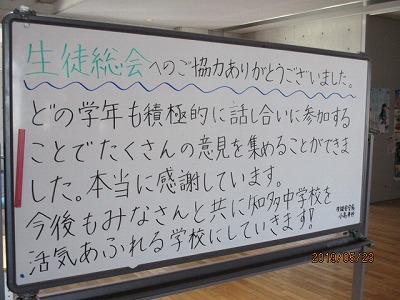 生徒総会へのご協力ありがとうございました。
どの学年も積極的に話し合いに参加する
ことでたくさんの意見を集めることができま
した。本当に感謝しています。
今後もみなさんと共に知多中学校を
活気あふれる学校にしていきます!
2019/05/23